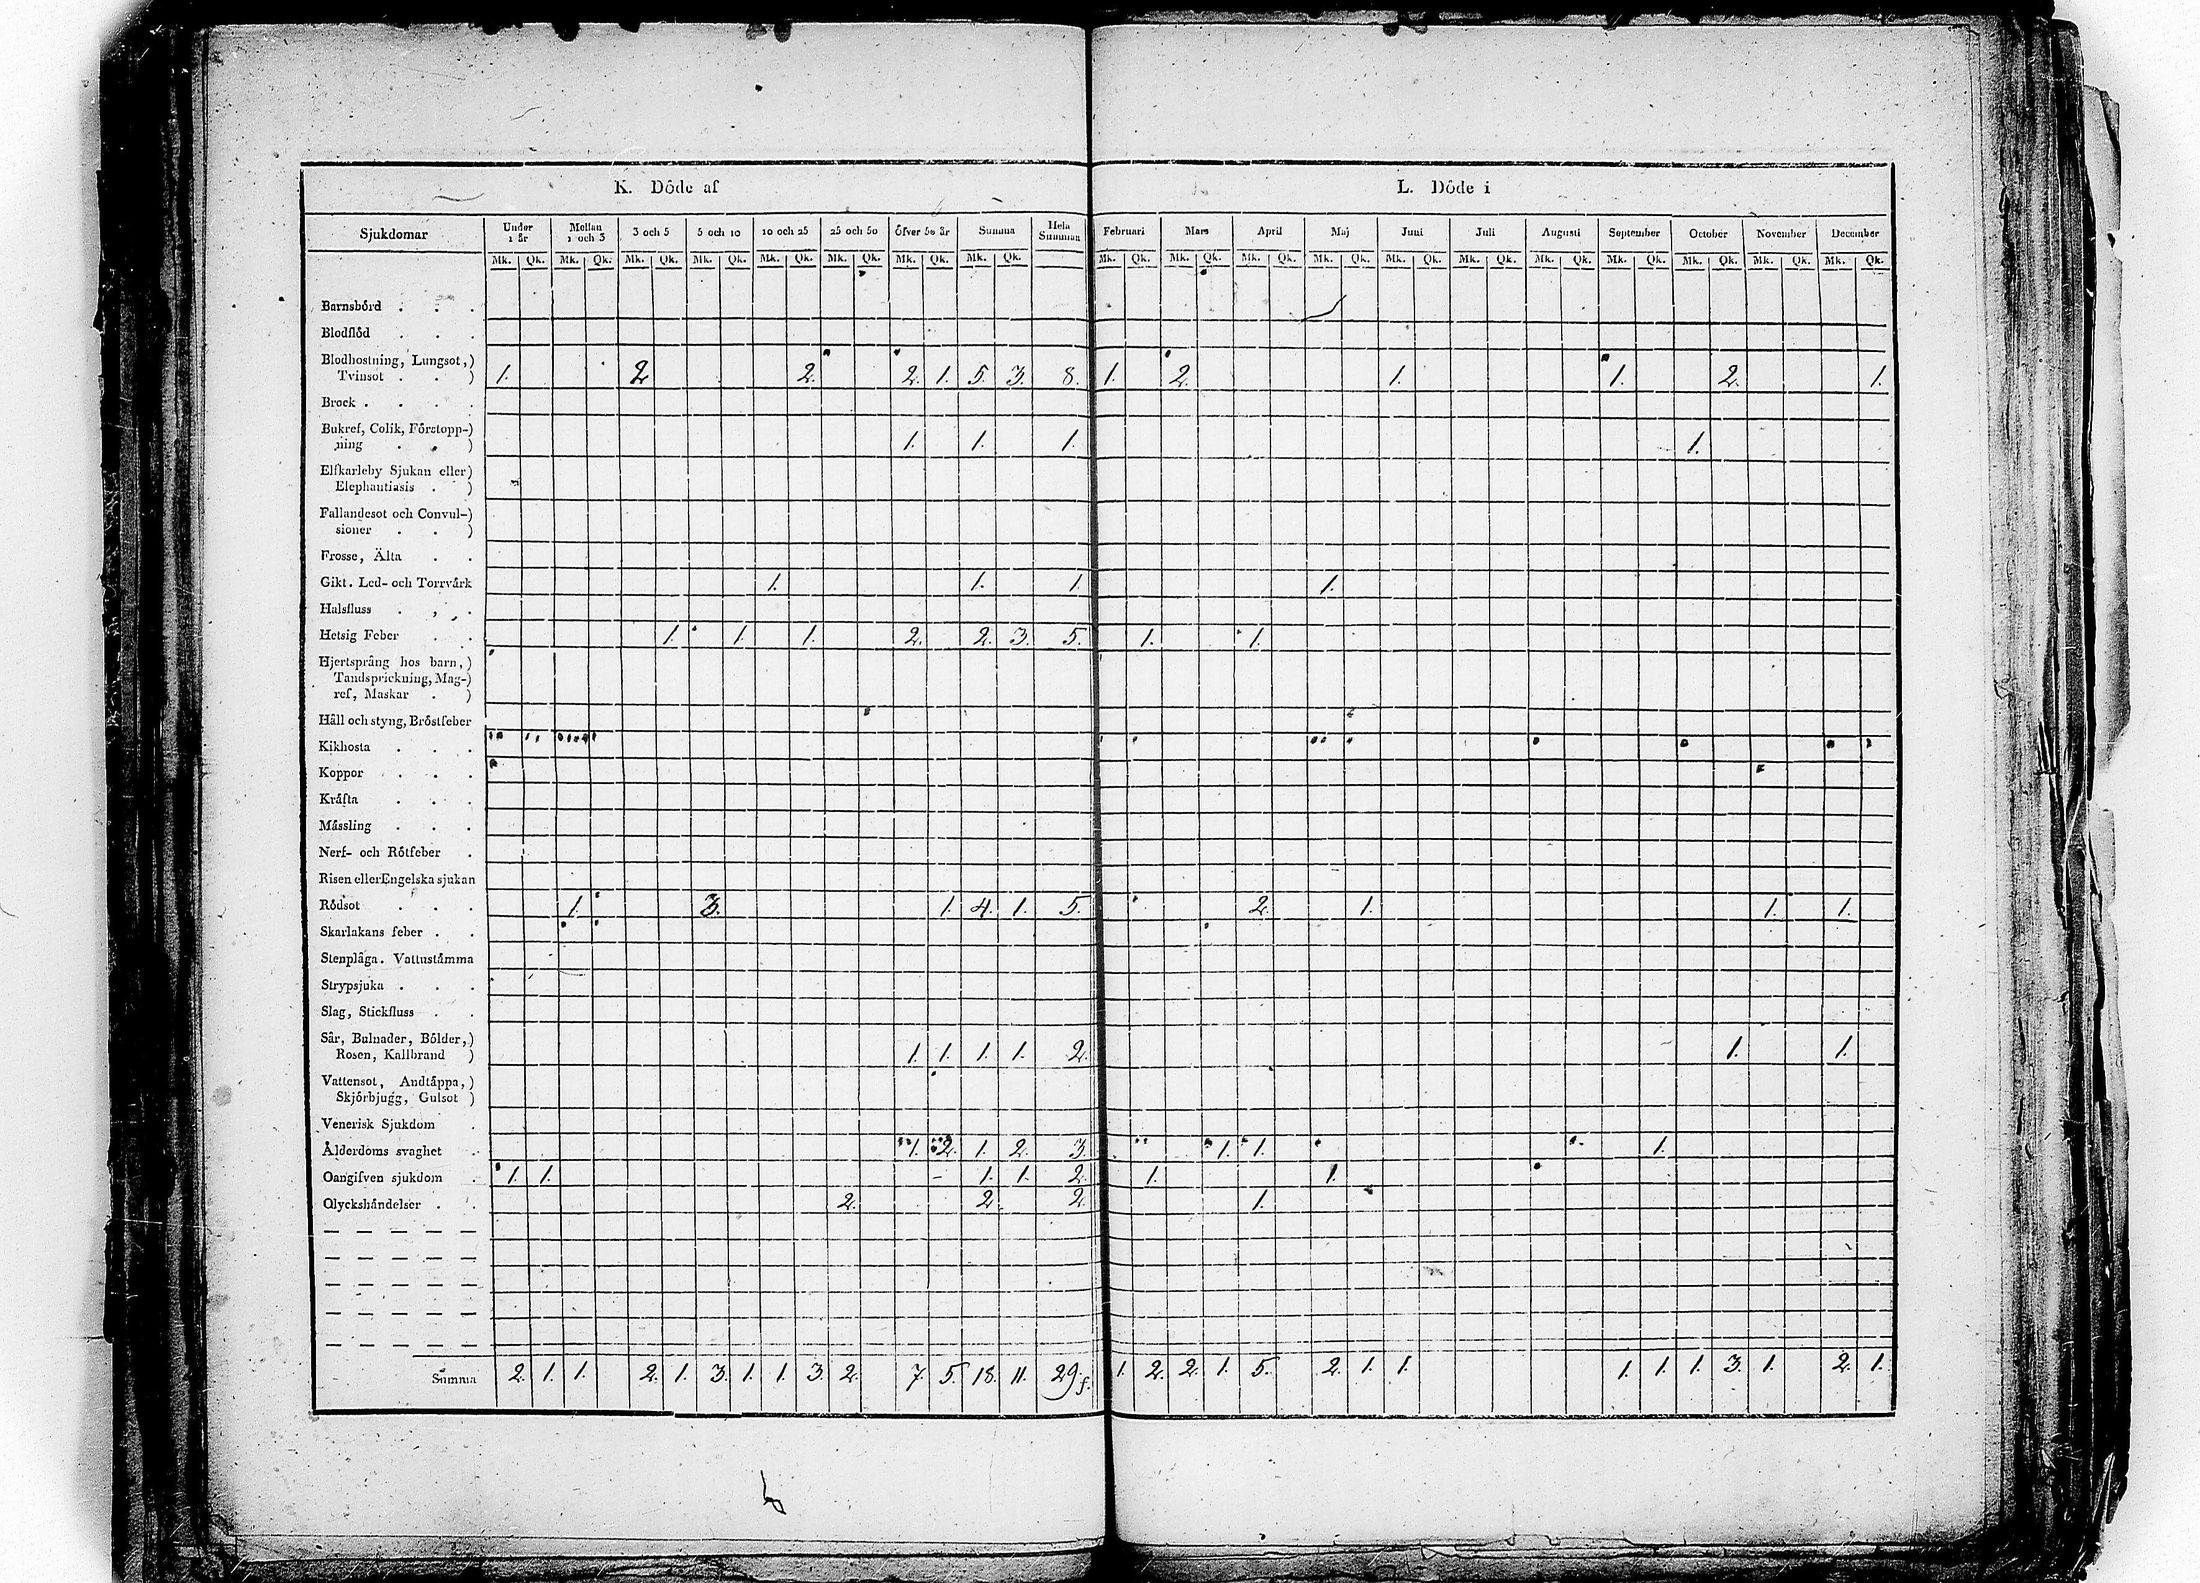 K. Döde af L. Döde i
Sjukdomar Under 1 år Mellan 1 och 3 3 och 5 5 och 10 10 och 25 25 och 50 Öfver 50 år Summa Hela Summan Februari Mars April Maj Juni Juli Augusti September October November December
Mk. Qk. Mk. Qk. Mk. Qk. Mk. Qk. Mk. Qk. Mk. Qk. Mk. Qk. Mk. Qk. Mk. Qk. Mk. Qk. Mk. Qk. Mk. Qk. Mk. Qk. Mk. Qk. Mk. Qk. Mk. Qk. Mk. Qk. Mk. Qk. Mk. Qk.
Barnsbörd . . .
Blodflöd . . .
Blodhostning, Lungsot,)
Tvinsot . . ) 1. 2 2. 2. 1. 5. 3. 8. 1. 2. 1. 1. 2. 1.
Brock . . . .
Bukref, Colik, Förstopp-)
ning . . ) 1. 1. 1. 1.
Elfkarleby Sjukan eller)
Elephantiasis . )
Fallandesot och Convul-)
sioner . . )
Frosse, Älta . .
Gikt. Led- och Torrvärk 1. 1. 1. 1.
Halsfluss . , .
Hetsig Feber . . 1. 1. 1. 2. 2. 3. 5. 1. 1.
Hjertsprång hos barn,)
Tandsprickning, Mag-)
ref, Maskar . )
Håll och styng, Bröstfeber
Kikhosta . . .
Koppor . . .
Kräfta . . .
Mässling . . .
Nerf- och Rötfeber .
Risen eller Engelska sjukan
Rödsot . . . 1. 3. 1. 4. 1. 5. 2. 1. 1. 1.
Skarlakans feber . .
Stenplåga. Vattustämma
Strypsjuka . . .
Slag, Stickfluss . .
Sår, Bulnader, Bölder,)
Rosen, Kallbrand ) 1. 1. 1. 1. 2. 1. 1.
Vattensot, Andtäppa,)
Skjörbjugg, Gulsot )
Venerisk Sjukdom .
Ålderdoms svaghet . 1. 2. 1. 2. 3. 1. 1. 1.
Oangifven sjukdom . 1. 1. 1. 1. 2. 1. 1.
Olyckshändelser . . 2. 2. 2. 1.
Summa 2. 1. 1. 2. 1. 3. 1. 1. 3. 2. 7. 5. 18. 11. 29 f. 1. 2. 2. 1. 5. 2. 1. 1. 1. 1. 1. 3. 1. 2. 1.